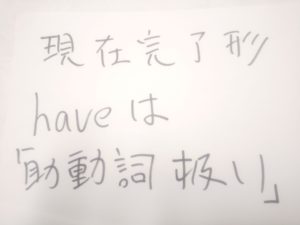 現在完了形
haveは
「助動詞扱い」